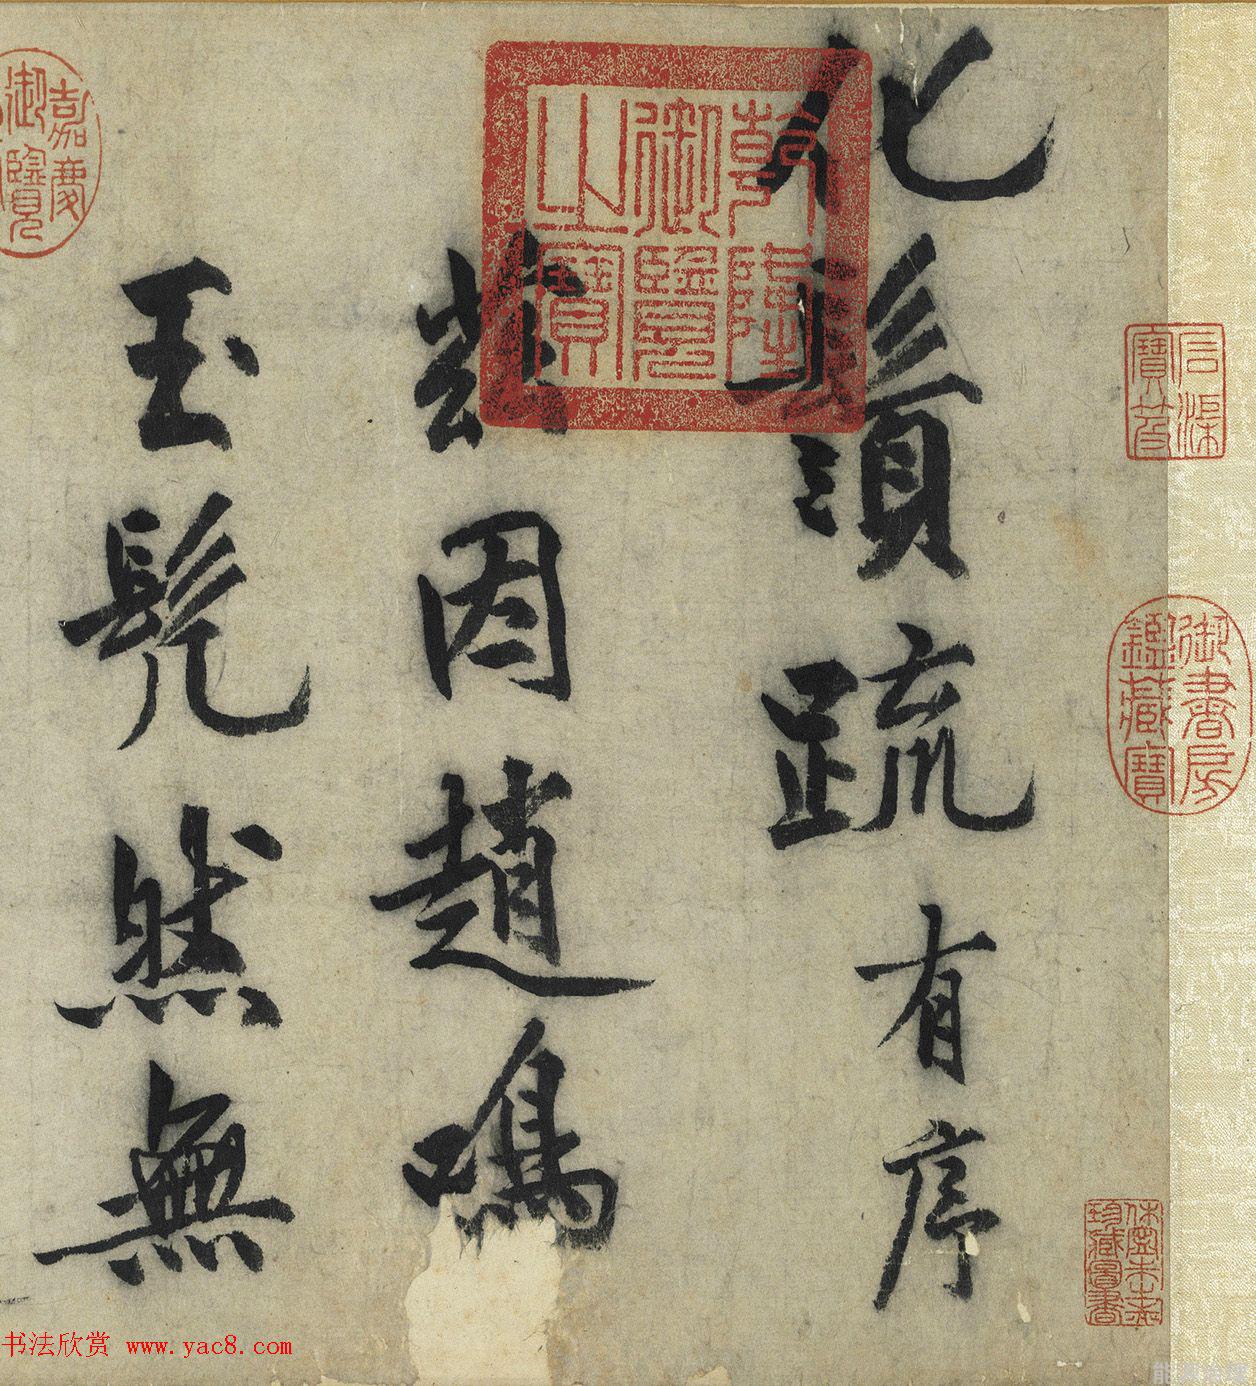 化鬚疏有序
茲因趙鳴
玉髡然無
乾隆御覽之寶
嘉慶御覽
石渠寶笈
御書房鑑藏寶
休寧朱之赤珍藏圖書
书法欣赏 www.yac8.com